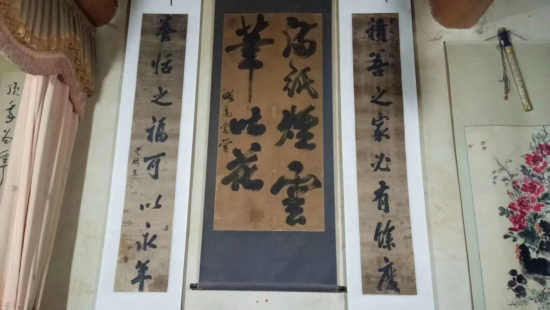 積善之家必有餘慶
滿紙煙雲
筆吐花
養怡之福可以永年